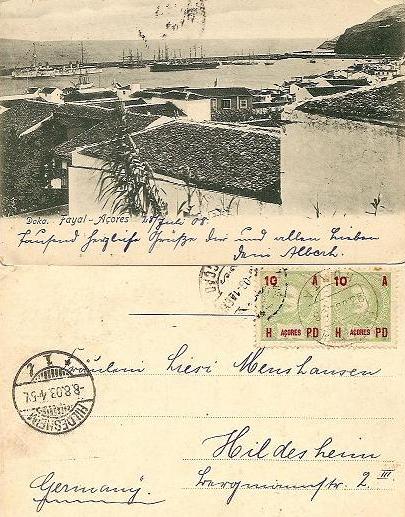 Doka. Fayal - Açores 28 Juli 03.
Tausend herzliche Grüße dir und allen Lieben
dein Albert.
10 A 10 A
H AÇORES PD H AÇORES PD
Fräulein Liesi Menshausen
HILDESHEIM
8.8.03.4-5N.
Hildesheim
Bergmannstr. 2 III
Germany.